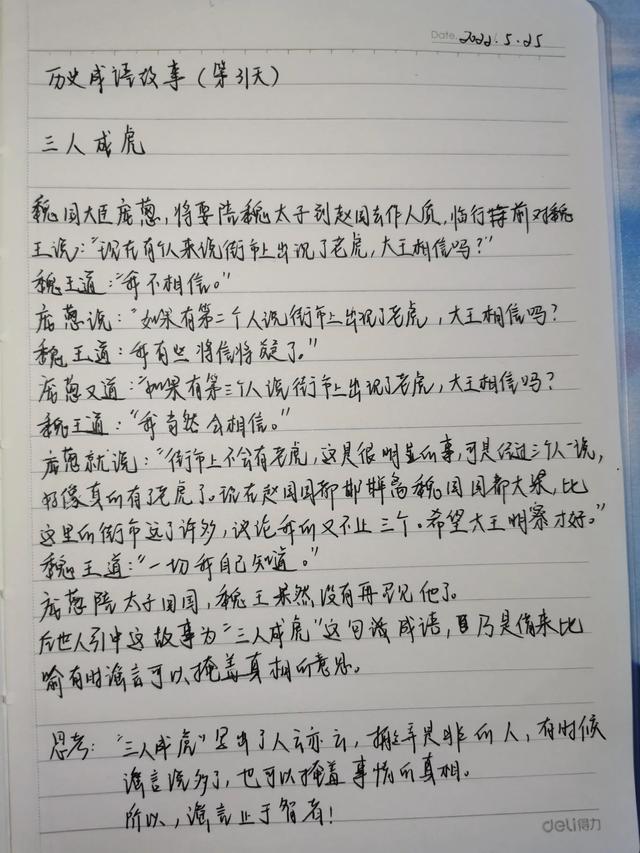 Date. 2022.5.25
历史成语故事（第31天）
三人成虎
魏国大臣庞葱，将要陪魏太子到赵国去作人质，临行前对魏
王说："现在有个人来说街市上出现了老虎，大王相信吗？"
魏王道："我不相信。"
庞葱说："如果有第二个人说街市上出现了老虎，大王相信吗？
魏王道：我有些将信将疑了。"
庞葱又道："如果有第三个人说街市上出现了老虎，大王相信吗？
魏王道："我当然会相信。"
庞葱就说："街市上不会有老虎，这是很明显的事，可是经过三个人一说，
好像真的有了老虎了。现在赵国国都邯郸离魏国国都大梁，比
这里的街市远了许多，议论我的又不止三个。希望大王明察才好。"
魏王道："一切我自己知道。"
庞葱陪太子回国，魏王果然没有再召见他了。
后世人引申这故事为"三人成虎"这句成语，乃是借来比
喻有时谣言可以掩盖真相的意思。
思考："三人成虎"写出了人云亦云，搬弄是非的人，有时候
谣言说多了，也可以掩盖事情的真相。
所以，谣言止于智者！
deli得力